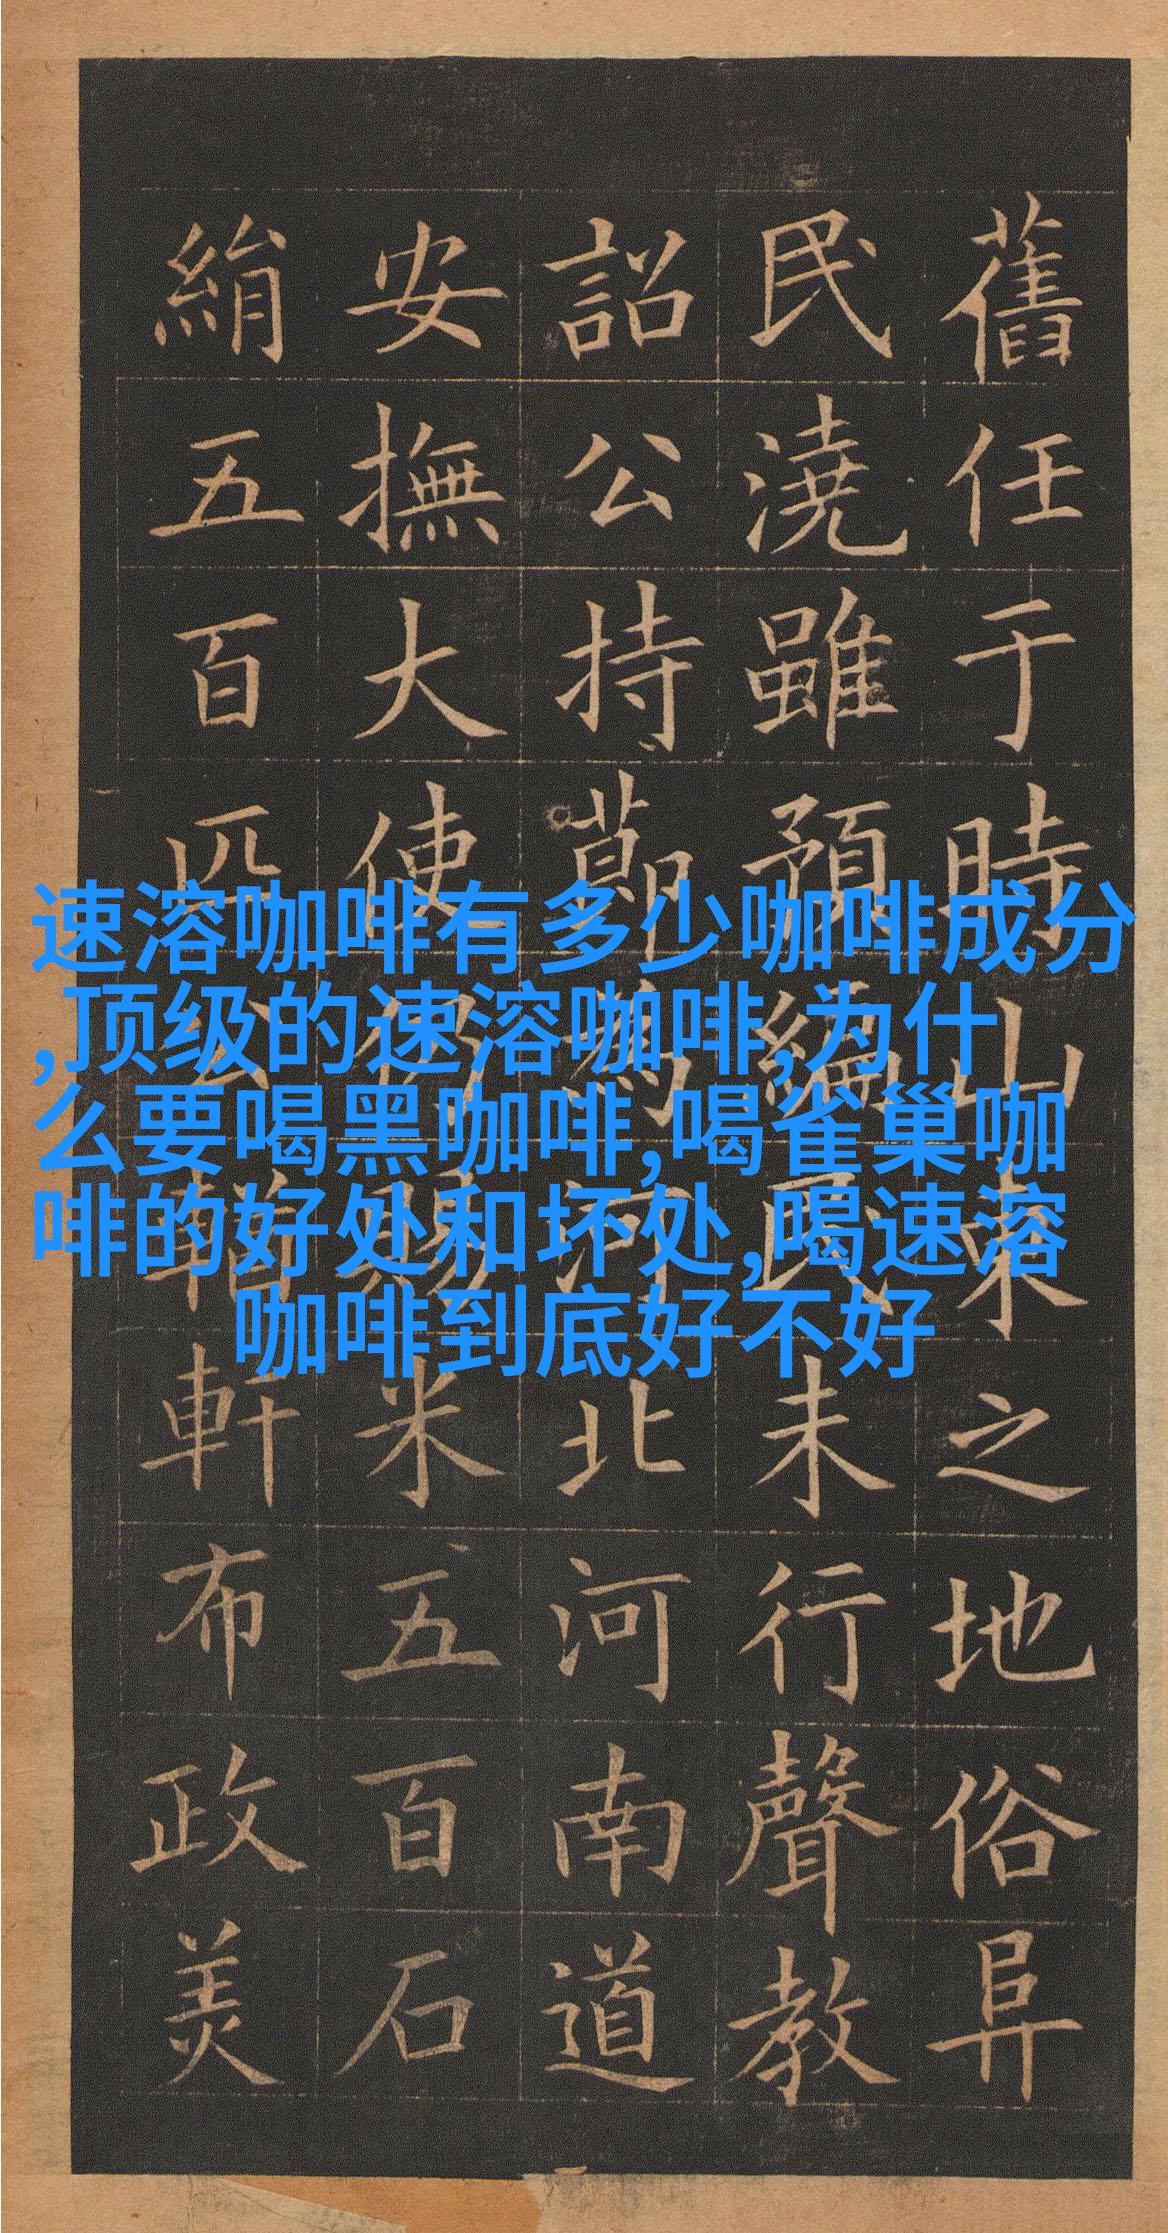 速溶咖啡有多少咖啡成分
,顶级的速溶咖啡,为什
么要喝黑咖啡,喝雀巢咖
啡的好处和坏处,喝速溶
咖啡到底好不好
舊任于時山東之地俗阜
民澆雖預編民未行聲教
詔公持節為河北河南道
安撫大使仍賜米五百石
絹五百匹公輶軒布政美